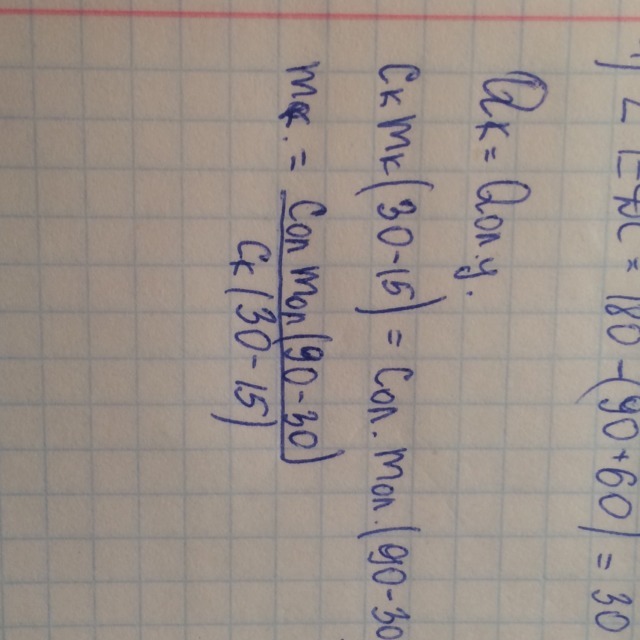 = 180 - (90 + 60) = 30
Qк = Qал.ч.
Cк Mк (30 - 15) = Cал. Mал. (90 - 30
Mк. = Cал Mал (90 - 30) / Cк (30 - 15)